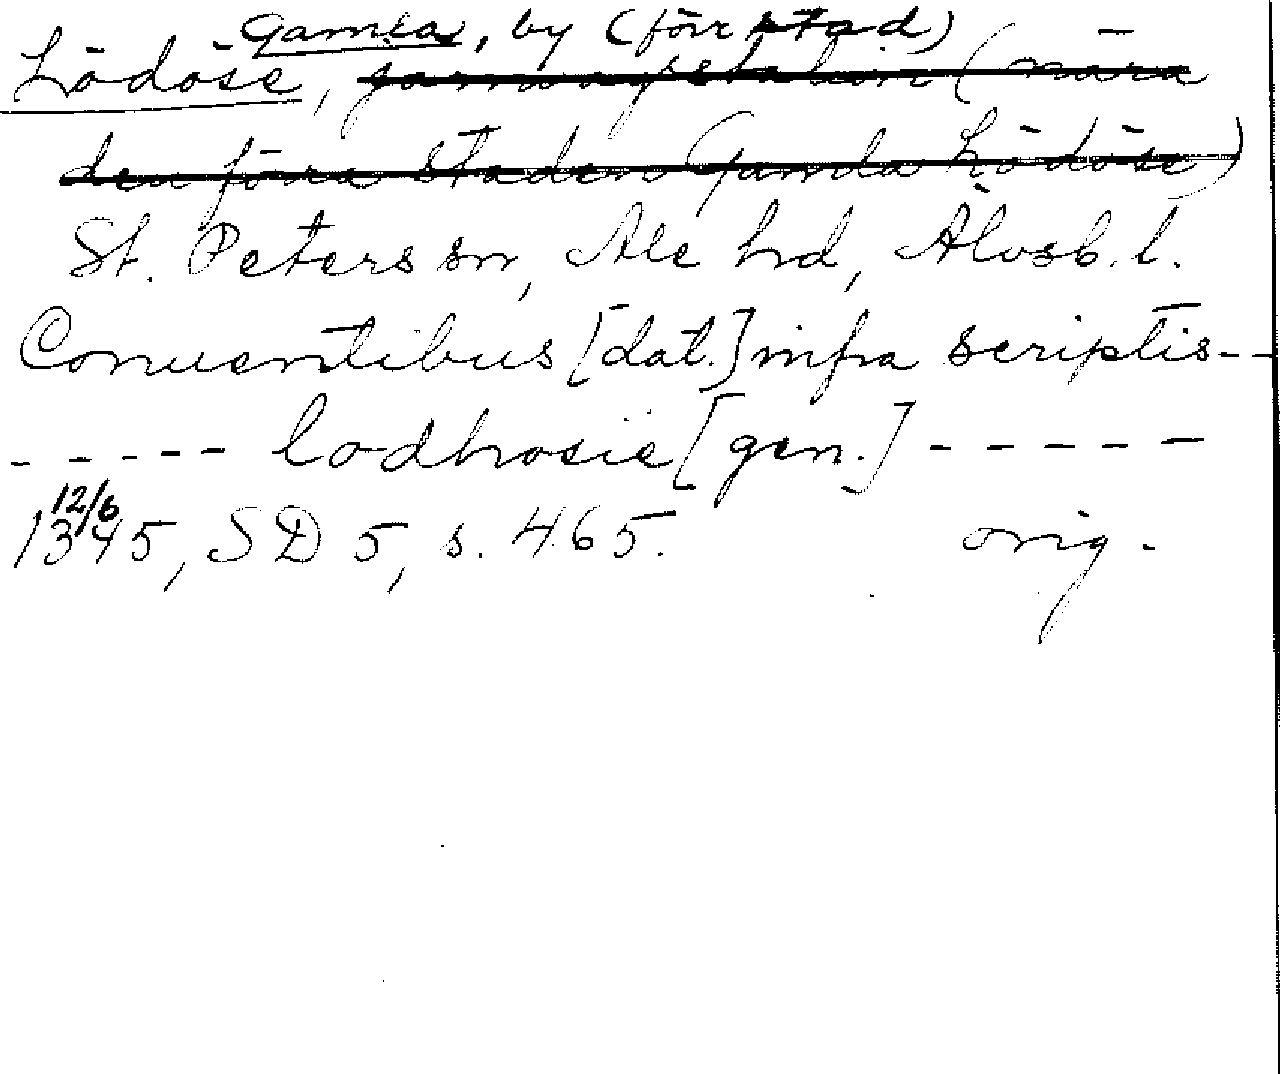 Gamla, by (förr stad)
Lödöse, järnvägsstation (nära
den förra staden Gamla Lödöse)
St. Peters sn, Ale hd, Älvsb. l.
Conuentibus [dat.] infra scriptis--
----- lodhosie [gen.] -----
12/6
1345, SD 5, s. 465. orig.